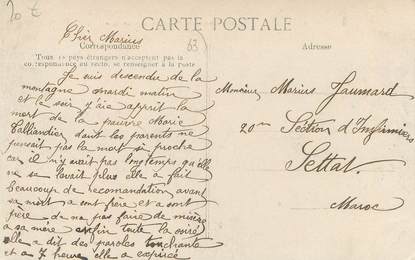 20 €
CARTE POSTALE
Cher Marius
63
Correspondance
Adresse
Tous les pays étrangers n'acceptent pas la
correspondance au recto, se renseigner à la poste
Je suis descendu de la
montagne mardi matin
et le soir j'aie apprit la
mort de la pauvre Marie
Talliandier dont les parents ne
pensait pas la mort si proche
car il n'y avait pas longtemps qu'elle
ne se lavait plus elle a fait
beaucoup de recomandation avant
sa mort a ont frère et a sont
père de ne pas faire de misère
a sa mère enfin toute la soiré
elle a dit des paroles touchante
et a 7 heure elle a expirée
Monsieur Marius Jaumard
20me Section d'Infirmiers
Settat.
Maroc